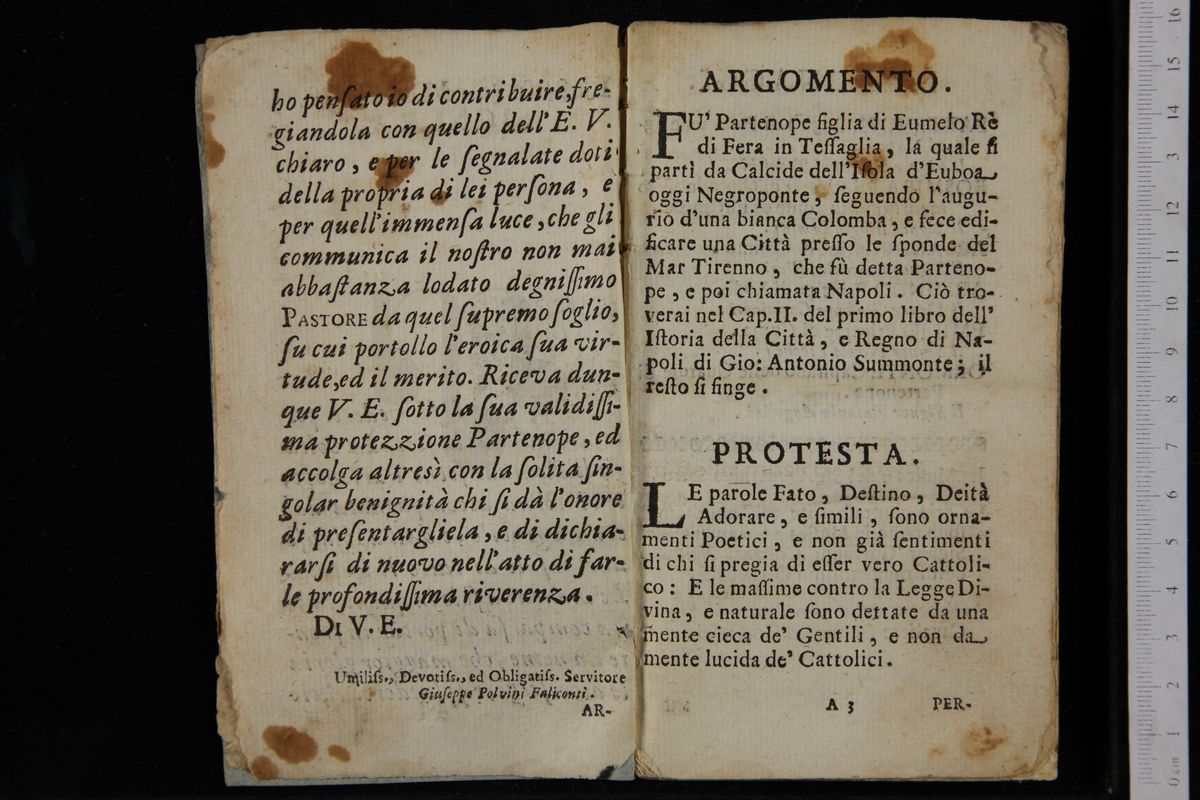 ho penſato io di contribuire, fre-
giandola con quello dell'E. V.
chiaro, e per le ſegnalate doti
della propria di lei perſona, e
per quell'immenſa luce, che gli
communica il noſtro non mai
abbaſtanza lodato degniſſimo
PASTORE da quel ſupremo ſoglio,
ſu cui portollo l'eroica ſua vir-
tude, ed il merito. Riceva dun-
que V. E. ſotto la ſua validiſſi-
ma protezzione Partenope, ed
accolga altresì con la ſolita ſin-
golar benignità chi ſi dà l'onore
di preſentargliela, e di dichia-
rarſi di nuovo nell'atto di far-
le profondiſſima riverenza.
DI V. E.
Umiliſs., Devotiſs., ed Obligatiſs. Servitore
Giuſeppe Polvini Faliconti.
AR-
ARGOMENTO.
FU' Partenope figlia di Eumelo Rè
di Fera in Teſſaglia, la quale ſi
partì da Calcide dell'Iſola d'Euboa
oggi Negroponte, ſeguendo l'augu-
rio d'una bianca Colomba, e fece edi-
ficare una Città preſſo le ſponde del
Mar Tirenno, che fù detta Parteno-
pe, e poi chiamata Napoli. Ciò tro-
verai nel Cap.II. del primo libro dell'
Iſtoria della Città, e Regno di Na-
poli di Gio: Antonio Summonte; il
reſto ſi finge.
PROTESTA.
LE parole Fato, Deſtino, Deità
Adorare, e ſimili, ſono orna-
menti Poetici, e non già ſentimenti
di chi ſi pregia di eſſer vero Cattoli-
co: E le maſſime contro la Legge Di-
vina, e naturale ſono dettate da una
mente cieca de' Gentili, e non da
mente lucida de' Cattolici.
A 3
PER-
0 cm 1 2 3 4 5 6 7 8 9 10 11 12 13 14 15 16